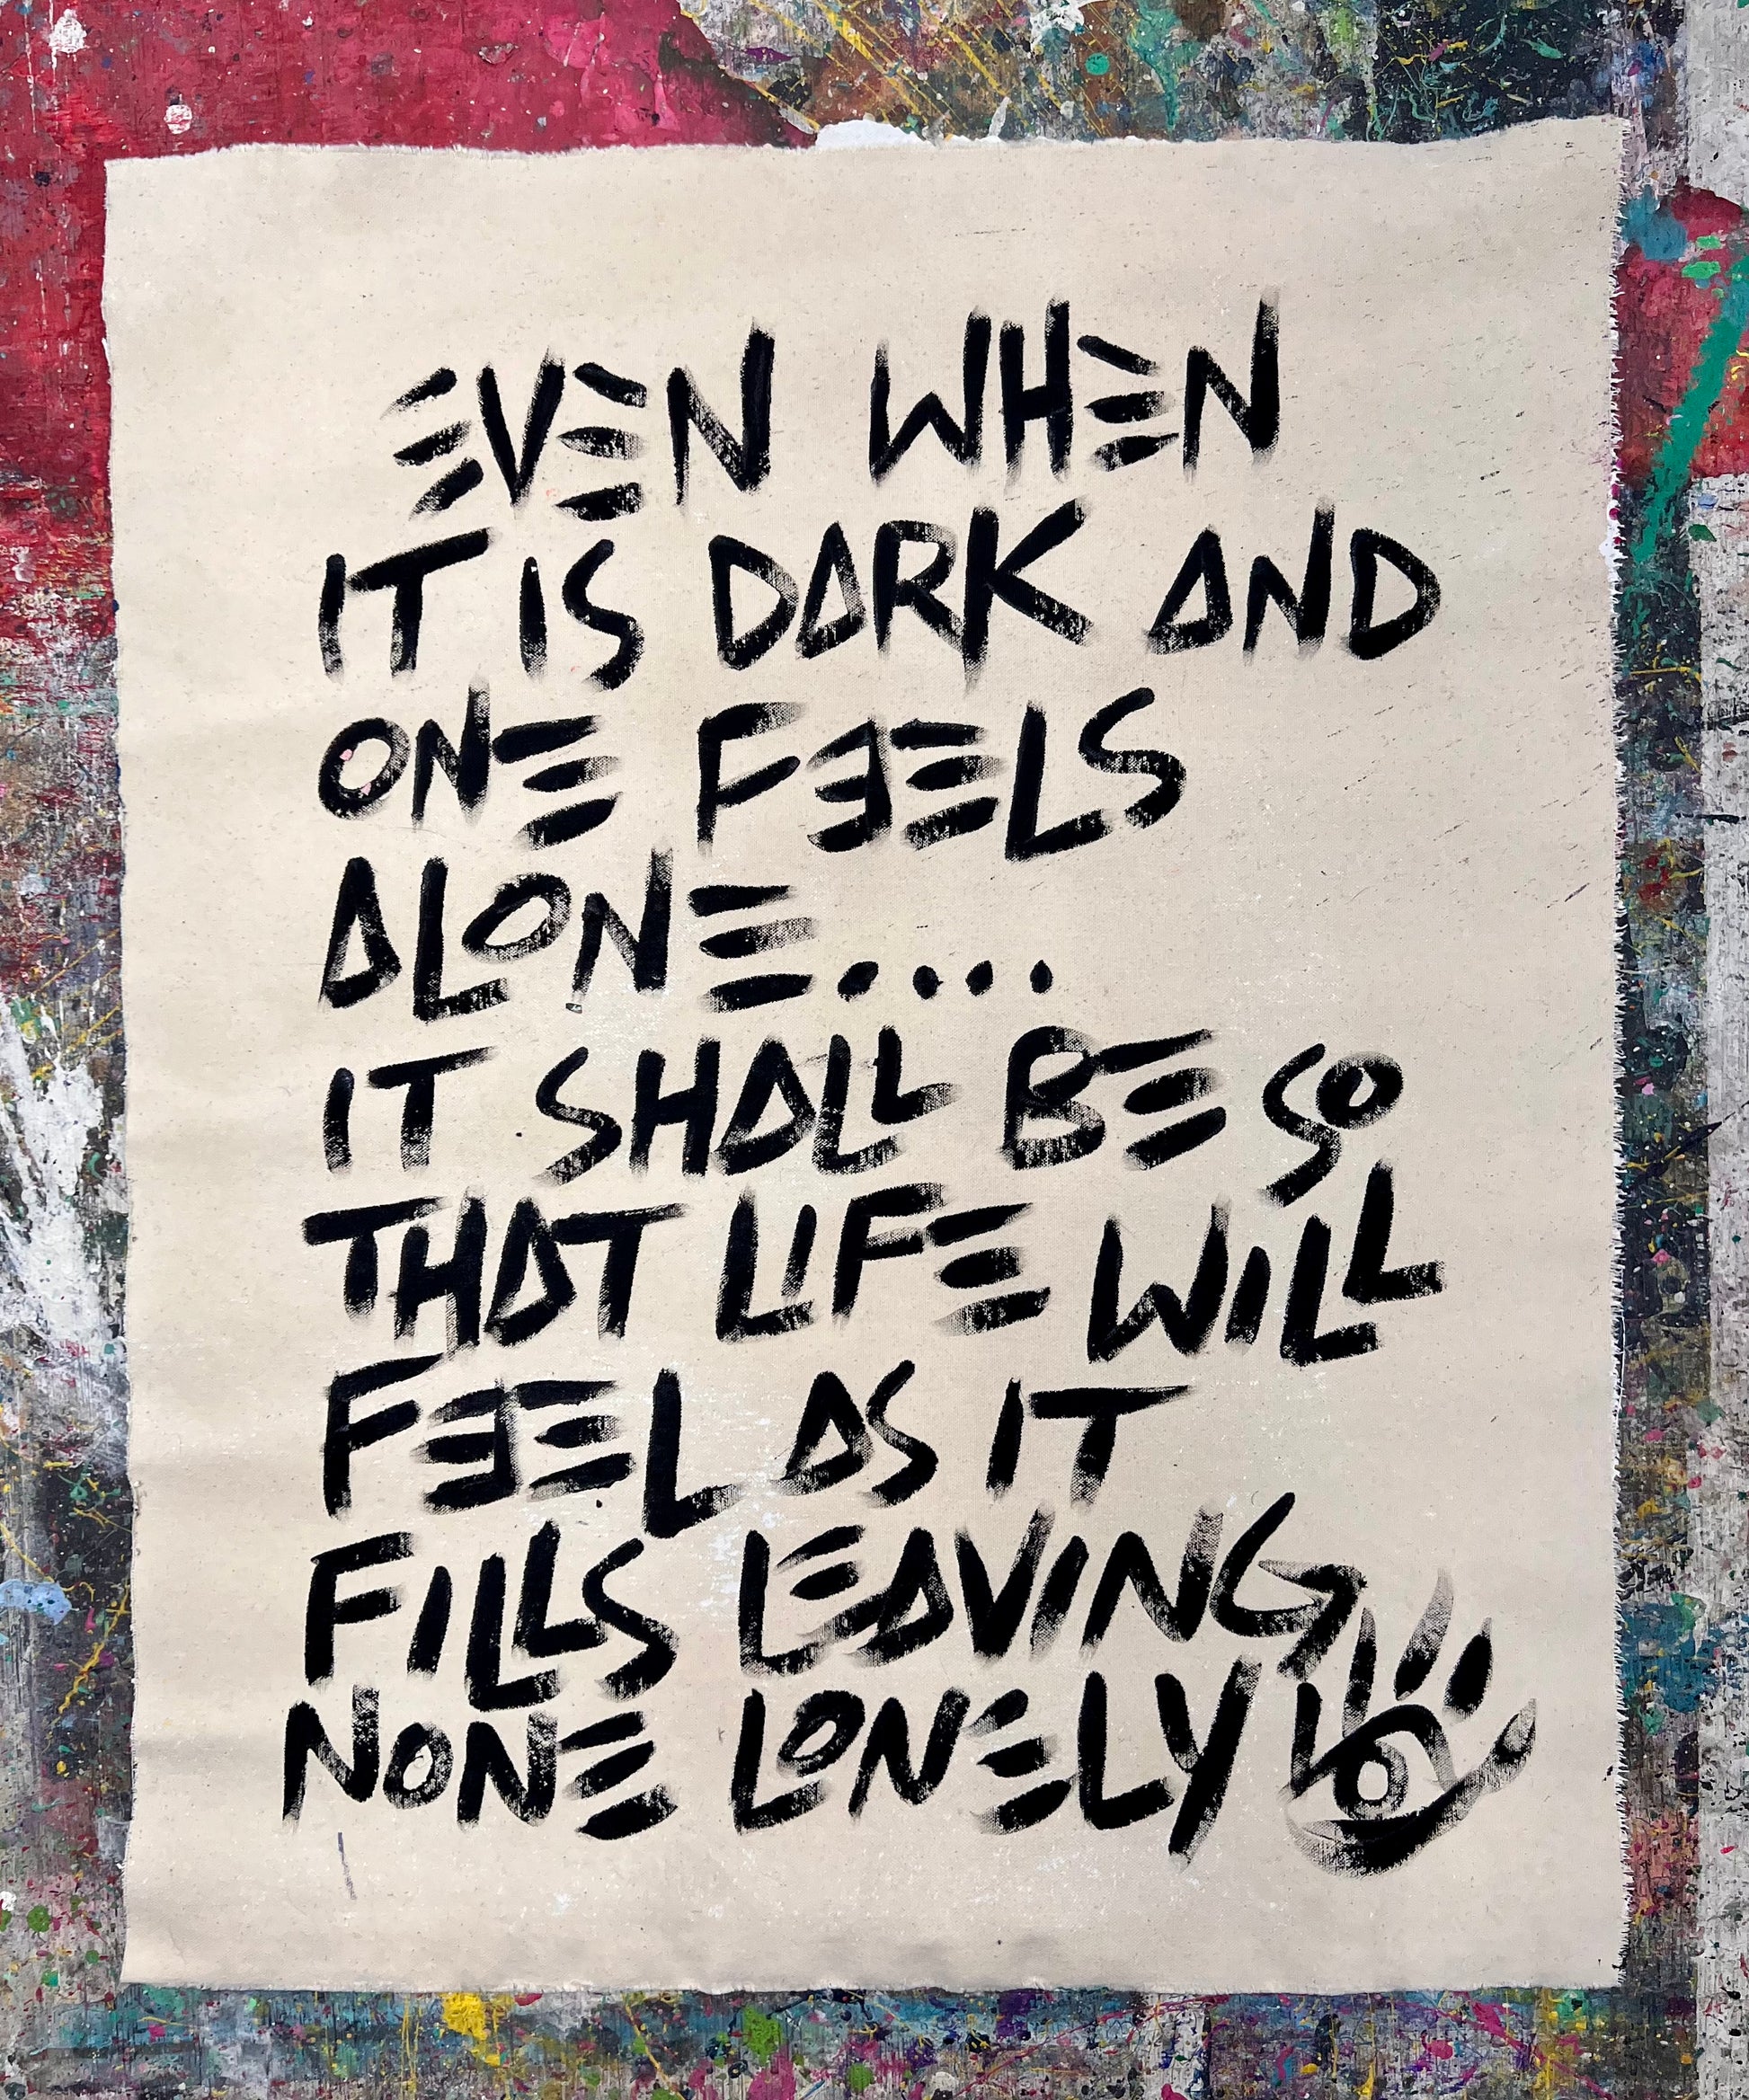 EVEN WHEN
IT IS DARK AND
ONE FEELS
ALONE....
IT SHALL BE SO
THAT LIFE WILL
FEEL AS IT
FILLS LEAVING
NONE LONELY